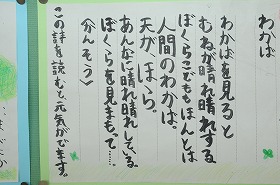 わかば
わかばを見ると
むねが晴れ晴れする
ぼくらこどももほんとは
人間のわかば。
天がほら。
あんなに晴れ晴れしている
ぼくらを見まもって……
(かんそう)
この詩を読むと元気がでます。